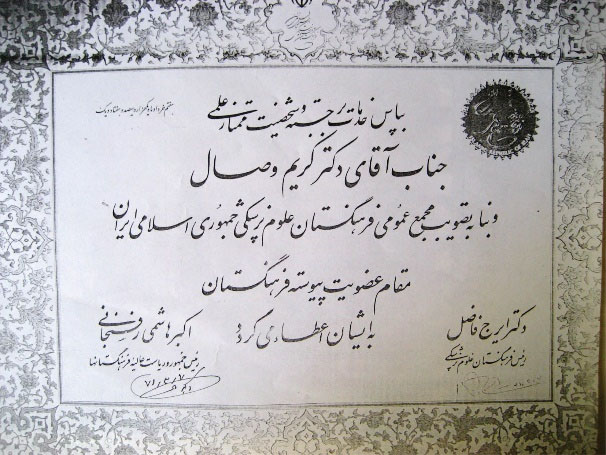 هفتم خرداد ماه یکهزار و سیصد و هفتاد و یک
بپاس خدمات برجسته و شخصیت ممتاز علمی
جناب آقای دکتر کریم وصال
و بنا به تصویب مجمع عمومی فرهنگستان علوم پزشکی جمهوری اسلامی ایران
مقام عضویت پیوسته فرهنگستان
به ایشان اعطاء می گردد
دکتر ایرج فاضل
رئیس فرهنگستان علوم پزشکی
اکبر هاشمی رفسنجانی
رئیس جمهور و ریاست عالیه فرهنگستانها
۷۱/۳/۷